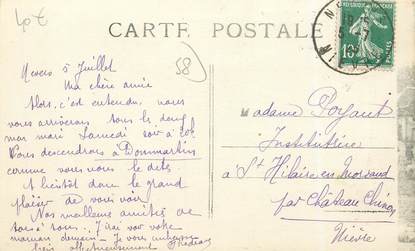 40€
CARTE POSTALE
58
Nevers 5 Juillet
Ma chère amie
Alors, c'est entendu, nous
vous arriverons tous les deux
mon mari Samedi soir à
Nous descendrons à Dommartin
comme vous nous le dites
A bientôt donc le grand
plaisir de vous voir
Nos meilleures amitiés de
tous à tous. J'irai voir votre
maman demain. Je vous embrasse
bien affectueusement
Madame
Institutrice
à St Hilaire en Morvand
par Château Chinon
Nièvre